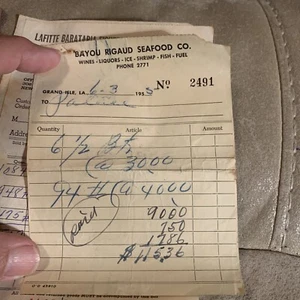 LAFITTE BARATARIA
BAYOU RIGAUD SEAFOOD CO.
WINES - LIQUORS - ICE - SHRIMP - FISH - FUEL
PHONE 2771
GRAND ISLE, LA. 6-3 195
No 2491
TO
Quantity Article Amount
6 1/2 @ 3000
94 # @ 4000
Paid
9000
750
1786
$11536